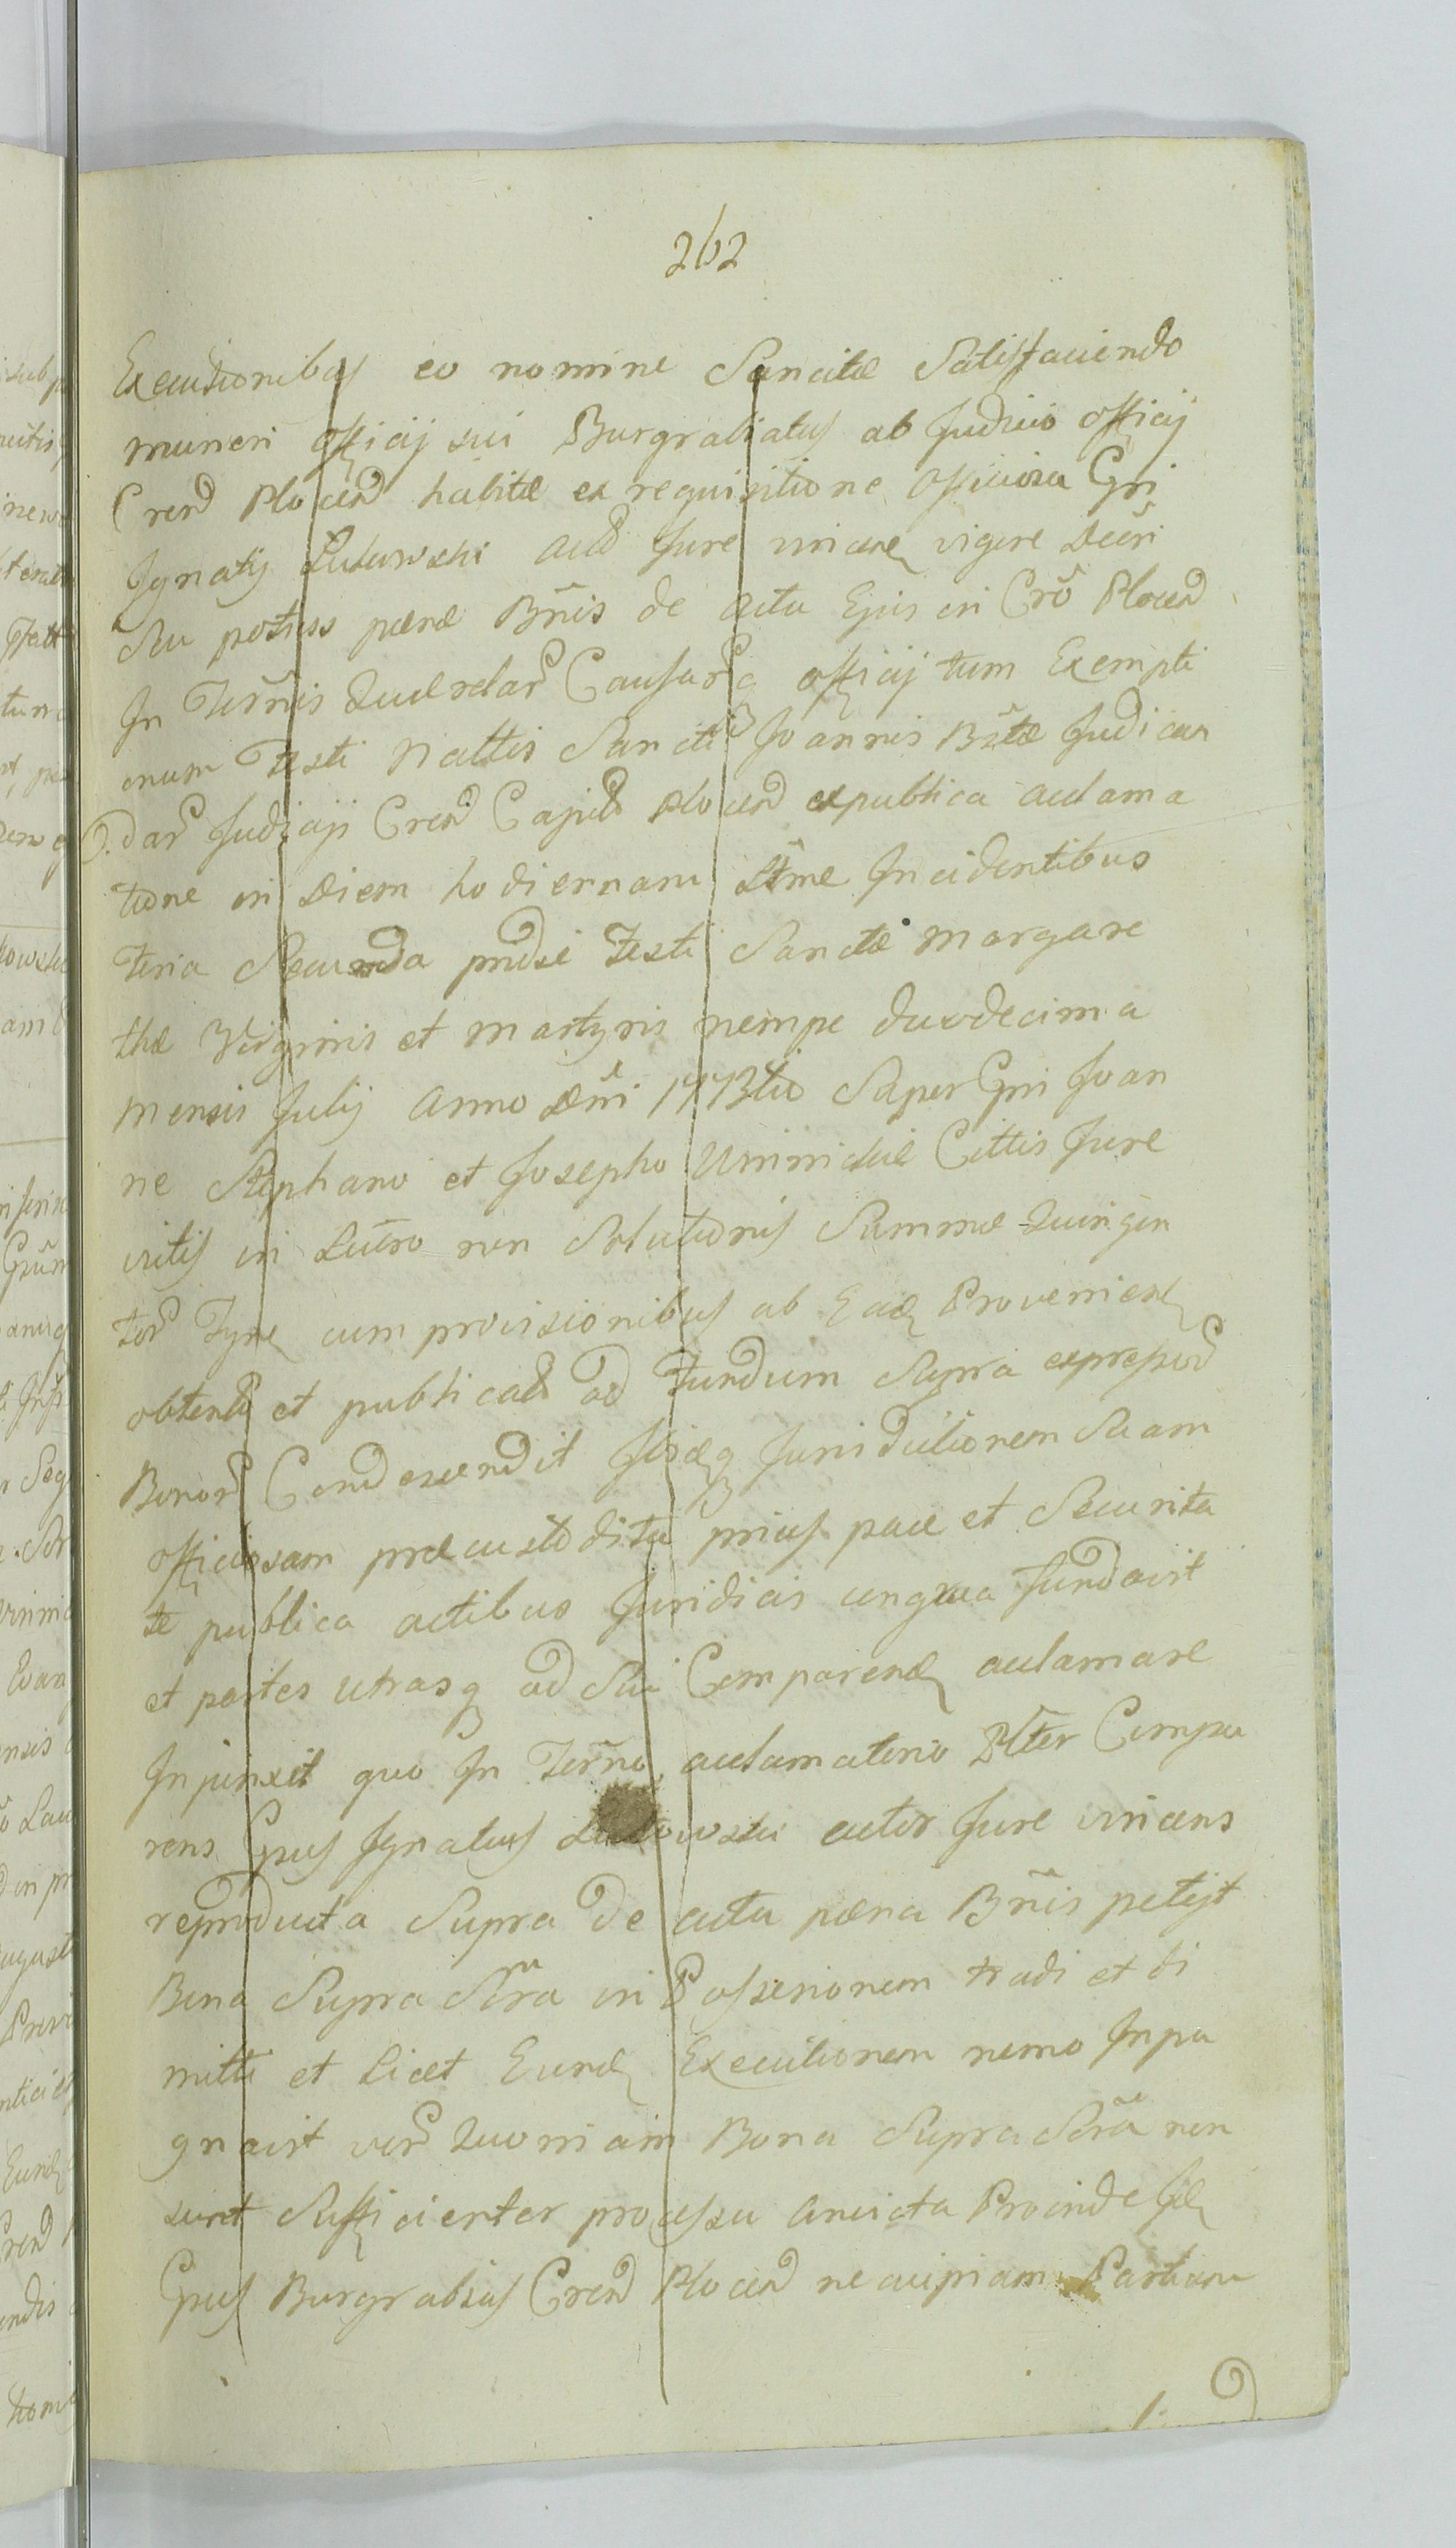 262
Executionibus eo nomine Sancitæ Satisfaciendo
muneri officij sui Burgrabiatus ab Judicio officij
Cren̄ Plocen̄ habitæ ex requisitione officiosa Gn̄i
Ignatij Lutowski Jure vincen vigore Decr̄i
Seu potius pænæ Bn̄is de actu Ejus in Crō Plocen̄
In Ter̄nis Querelar̄ Causar̄q officij tum Exempti
onum Festi Nattis Sancti Joannis Bp̄tæ Judican
dar̄ Judicij Cren̄ Plocen̄ expublica aclama
tione in Diem hodiernam Ltme Incidentibus
Feria Secunda pridie Festi Sanctæ Margare
thæ Virginis et Martyris nempe duodecima
Mensis Julij Anno Dn̄i 1773tio Super Gn̄i Joan
ne Stephano et Josepho Uminscie Cittis Jure
victis in Lucro non Solutionis Summæ Quingen
tor̄ Tynf cum provisionibus ab Ead Provenien
obtent et publicat ad Fundum Supra expressor̄
Bonor̄ Condescendit Ibiq Jurisdictionem Suam
officiosam præcustodita prius pace et Securita
te publica actibus Juridicis congrua fundavit
et partes utrasq ad Sui Comparend aclamare
Injunxit quo In Ter̄no aclamatorio Pltēr Compa
rens Gn̄us Ignatius Lutowski actor Jure vincens
reproducta Supra de actu pæna Bn̄is petijt
Bona Supra Scr̄a in Possesionem tradi et di
mitti et Licet Eund Executionem nemo Inpu
gnavit ver̄ Quoniam Bona Supra Scr̄a non
sunt Sufficienter processu Convicta Proinde Id
Gn̄us Burgrabius Cren̄ Plocen̄ ne cuipiam Partium